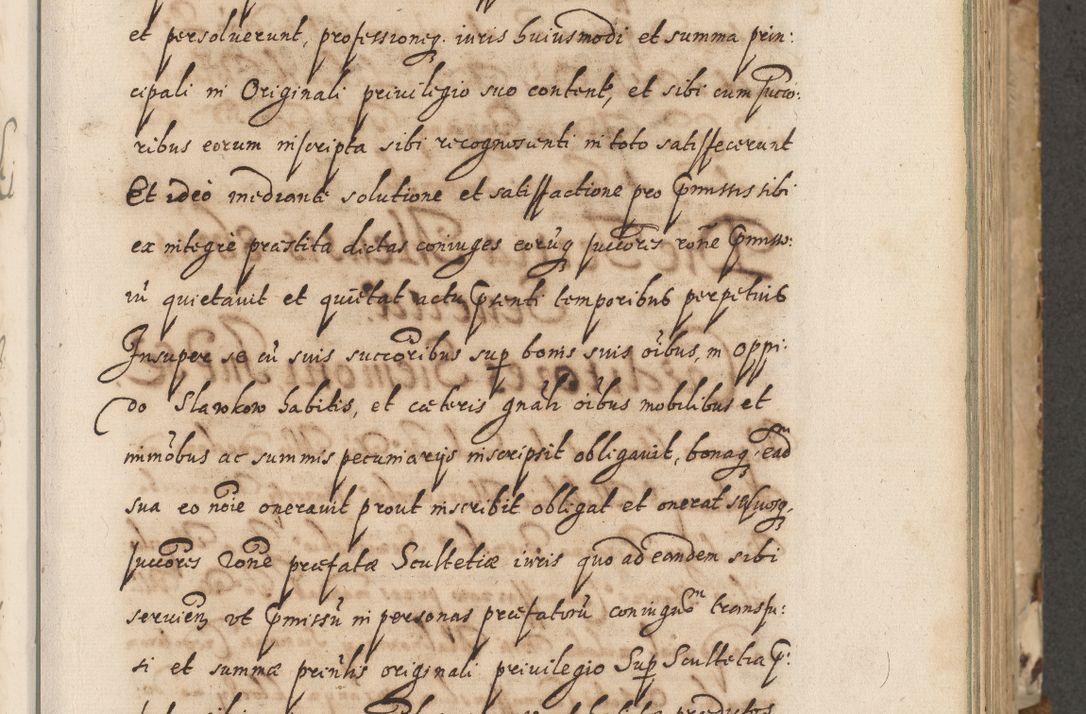 et persoluerunt, professioneq. iuris huiusmodi et summa prin:
cipali in Originali priuilegio suo content, et sibi cum succo:
ribus eorum inscripta sibi recognoscenti in toto satisfecerunt
Et ideò mediante solutione et satisfactione pro pmissis sibi
ex integre præstita dictas coniuges eorūq succōres rōne pmisso:
rū quietauit et quietat actu pñsenti temporibus perpetuis
Insuper se cū suis succōribus sup bonis suis ōibus, in oppi:
do Slawkow habitis, et cæteris gnāli ōibus mobilibus et
immōbus ac summis pecuniarijs inscripsit obligauit, bonaq, ead
sua eo nōie onerauit prout inscribit obligat et onerat se suosq,
succōres rōne præfatæ Scultetiæ iuris quo ad eandem sibi
seruien ut pmissū in personas præfatorū coniugū transfu:
si et summæ prinlis originali priuilegio Sup Scultetia p: